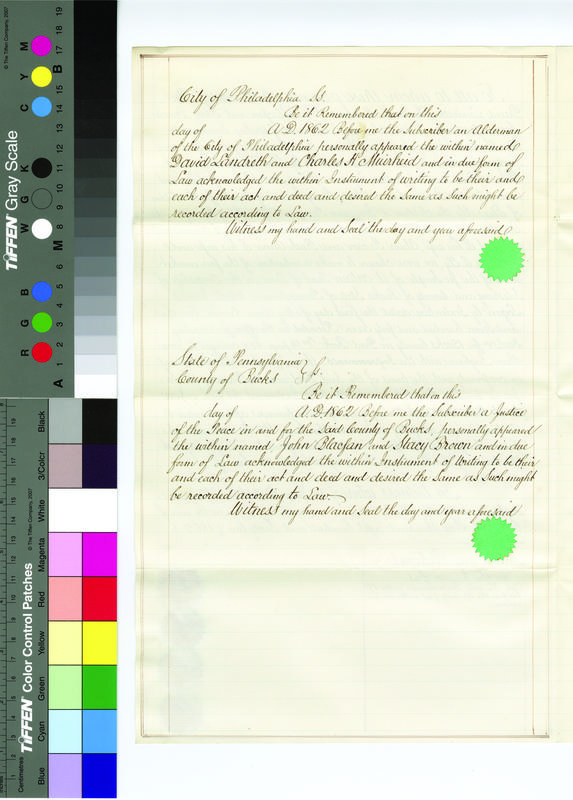 City of Philadelphia Ss.
Be it Remembered that on this
day of A.D. 1862 Before me the Subscriber an Alderman
of the City of Philadelphia personally appeared the within named
David Landreth and Charles H Muirheid and in due form of
Law acknowledged the within Instrument of writing to be their and
each of their act and deed and desired the Same as Such might be
recorded according to Law.
Witness my hand and Seal the day and year aforesaid
State of Pennsylvania
County of Bucks Ss.
Be it Remembered that on this
day of A.D. 1862 Before me the Subscriber a Justice
of the Peace in and for the Said County of Bucks personally appeared
the within named John Blacfan and Stacy Brown and in due
form of Law acknowledged the within Instrument of Writing to be their
and each of their act and deed and desired the Same as Such might
be recorded according to Law.
Witness my hand and Seal the day and year aforesaid
TIFFEN Gray Scale
© The Tiffen Company, 2007
R G B W G K C Y M
A 1 2 3 4 5 6 M 8 9 10 11 12 13 14 15 B 17 18 19
TIFFEN Color Control Patches
© The Tiffen Company, 2007
Centimetres
Blue Cyan Green Yellow Red Magenta White 3/Color Black